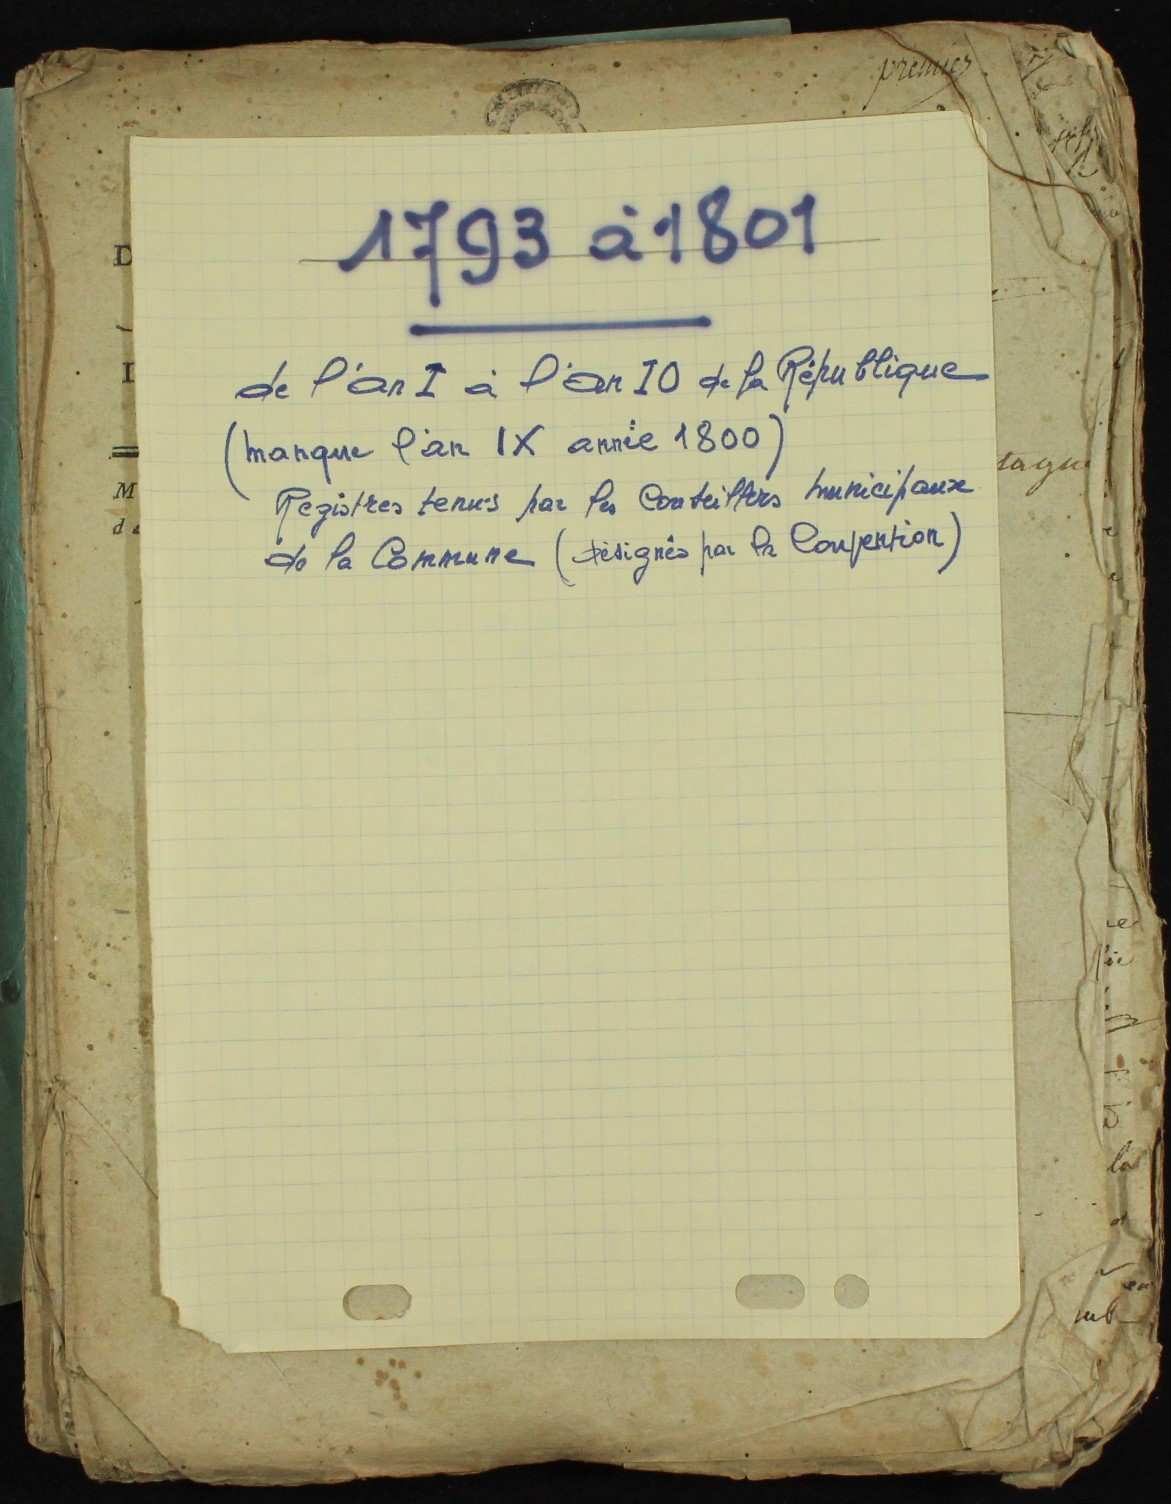 premier
1793 à 1801
de l'an I à l'an 10 de la République
(manque l'an IX année 1800)
Registres tenus par les Conseillers municipaux
de la Commune (désignés par la Convention)
D
I
M
d
la